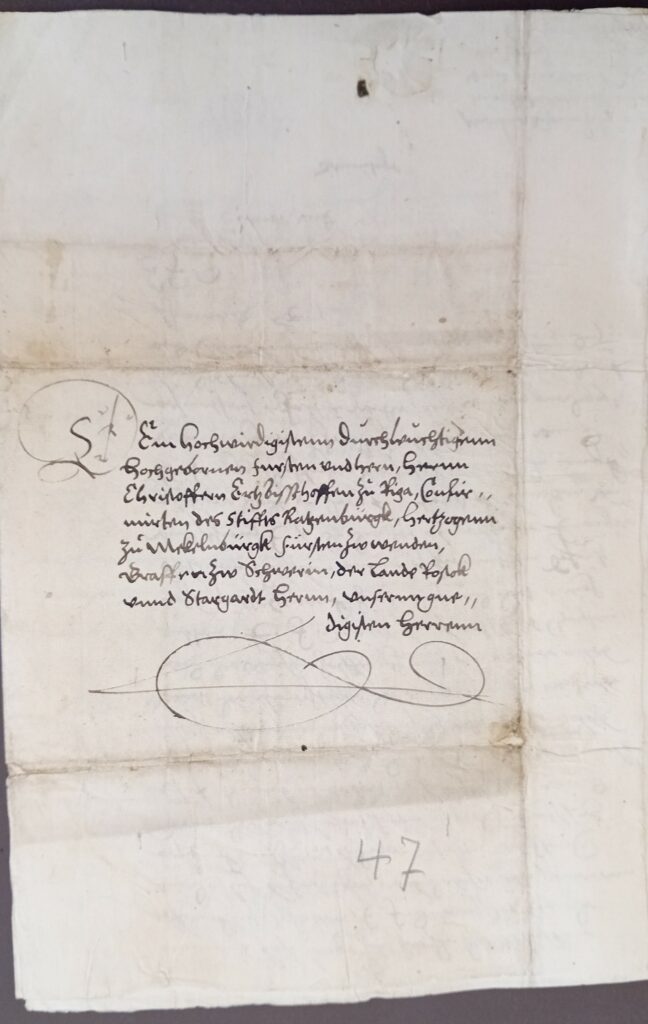 Dem Hochwirdigistenn Durchleuchtigenn
Hochgebornen Fursten und Hern, Hernn
Christoffern Ertzbisschoffen zů Riga, Confir,,
mirten des Stiffts Ratzenbůrgk, Hertzogenn
zů Mekelnbůrgk Fürsten zw wenden,
Graffen zw Schwerin, der Lande Rostok
unnd Stargardt Hernn, unsernn gne,,
digisten Herrenn
47